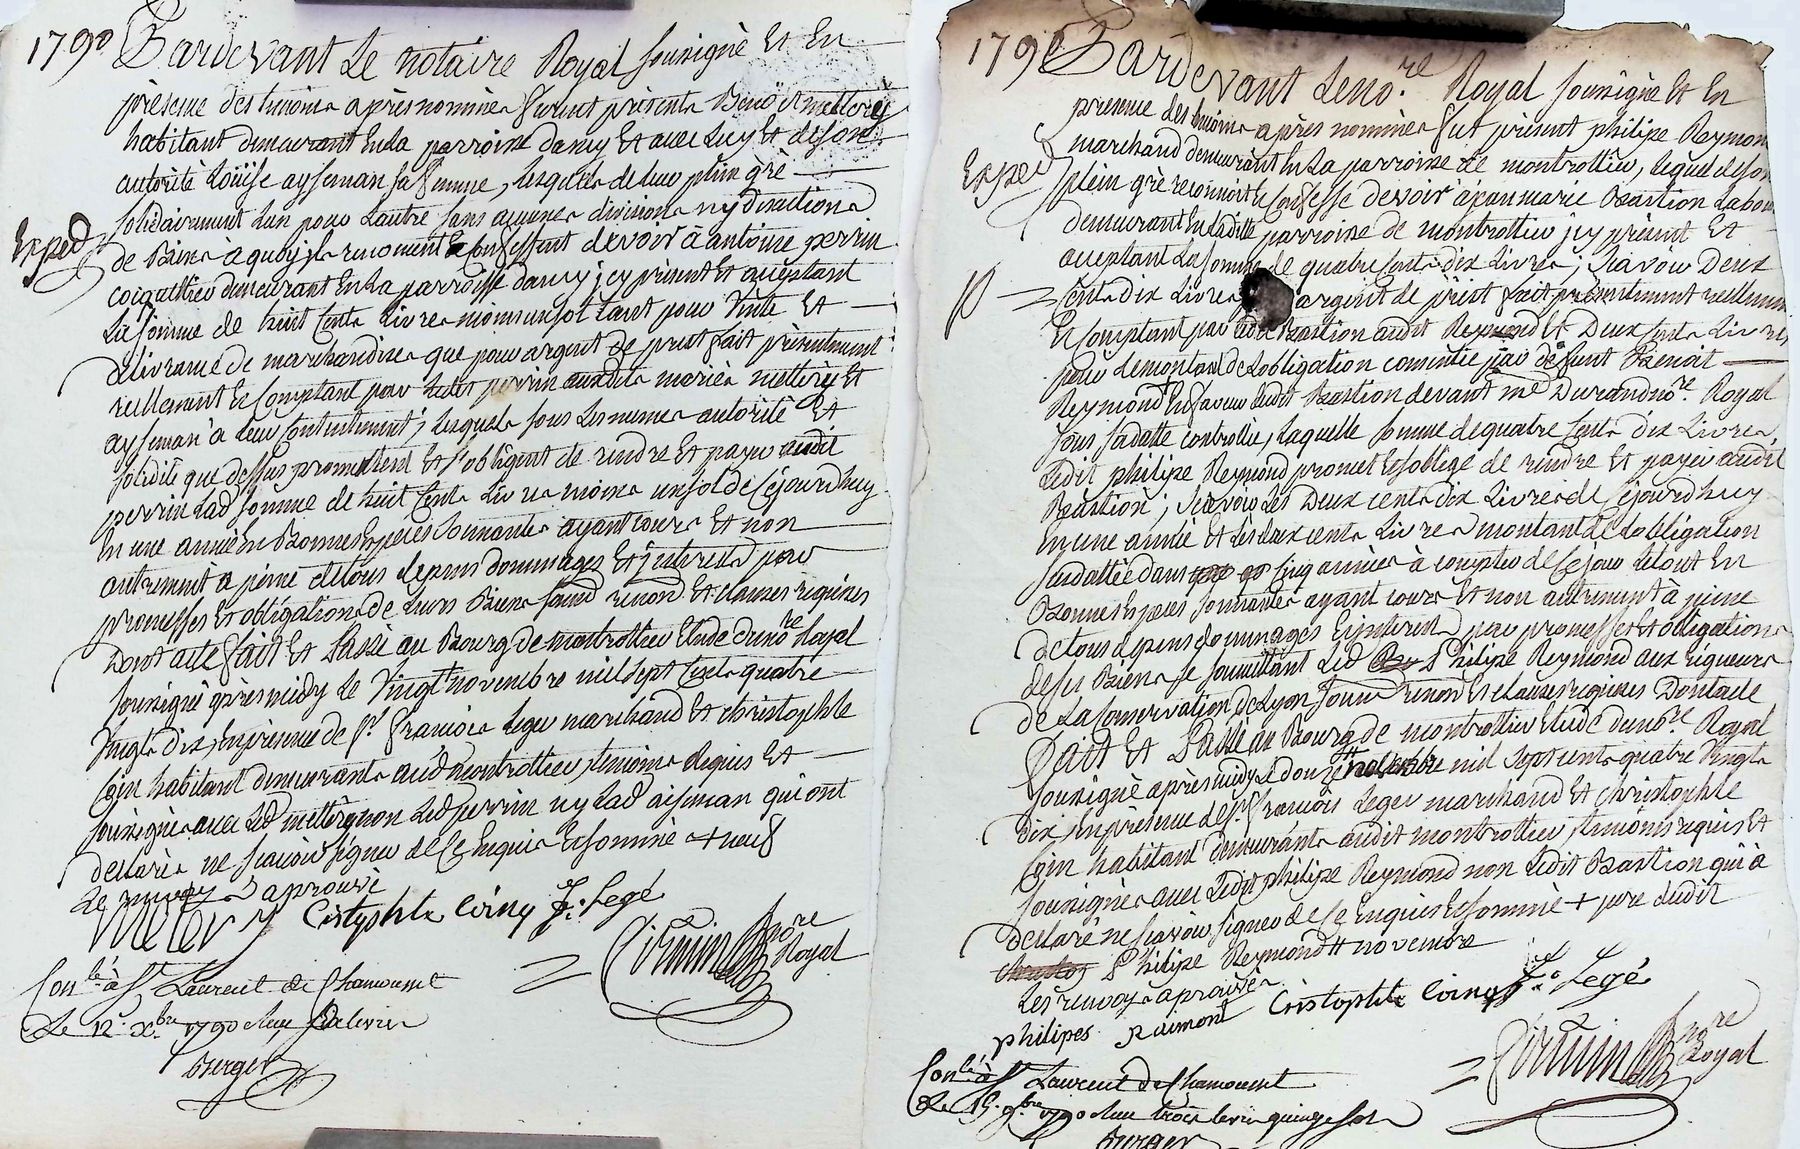 1790 Pardevant Le notaire Royal sousigné Et En
presence des temoins après nommés furent présents Benoit mellerey
habitant demeurant En la parroisse dancy Et avec Luy Et de son
autorité Loüise aysseman sa femme, Lesquels de leur plein gré
solidairement Lun pour Lautre sans aucunes divisions ny discutions
Exped
de Biens à quoy ils renoncent Et confessent devoir à antoine perrin
demeurant En la parroisse dancy icy présent Et acceptant
La somme de huit Cents Livres moins un sol tant pour Vente Et
délivrance de marchandises que pour argent de prest fait présentement
réellement Et comptant par Ledit perrin auxdits mariés mellerey Et
aysseman à leur contentement; Lesquels sous Les memes autorité Et
solidité que dessus promettent Et s'obligent de rendre Et payer audit
perrin Lad somme de huit Cents Livres moins un sol de Cejourdhuy
En une année En Bonnes Especes sonnantes ayant cours Et non
autrement à peine de tous depens dommages Et interests par
promesses Et obligations de leurs Biens soumd renond Et clauses requises
Dont acte fait Et Passé au Bourg de montrottier Etude du nore Royal
sousigné après midy Le Vingt novembre mil sept Cents quatre
Vingts dix, En présence de sr françois Leger marchand Et christophle
Coin habitant demeurants aud montrottier, temoins requis Et
sousignés avec Led mellerey non Led perrin ny Lad aisseman qui ont
déclarés ne scavoir signer de Ce Enquis Et sommés + neuf
Le renvoy aprouvé
Cristophle Coing f: Legé
nore
Royal
Conlé à St Laurent de Chamousset
Le 12e Xbre 1790 Reçu
Berger
1790 Pardevant Le nore. Royal sousigné Et En
presence des temoins après nommés fut présent philipe Reymond
marchand demeurant En La parroisse de montrottier, Lequel de son
Exped
plein gré reconnoit Et Confesse devoir à jean marie Bastion Labour
demeurant En Ladite parroisse de montrottier icy présent Et
acceptant La somme de quatre Cents dix Livres; scavoir Deux
Cents dix Livres argent de prest fait présentement réellement
Et comptant par Ledit Bastion audit Reymond Et Deux Cents Livres
pour Le montant de Lobligation consentie par défunt Benoit
Reymond En faveur dudit Bastion devant me Durand nore. Royal
sous sa datte controllée, Laquelle somme de quatre Cents dix Livres,
Ledit philipe Reymond promet Et soblige de rendre Et payer audit
Bastion; scavoir Les Deux cents dix Livres de Cejourdhuy
En une année Et Les deux cents Livres montant de Lobligation
susdattée dans cinq années à compter de Ce jour Letout En
Bonnes Especes sonnantes ayant cours Et non autrement à peine
de tous depens dommages Et interests par promesses Et obligations
de ses Biens se soumettant Led Philipe Reymond aux rigueurs
de La Conservation de Lyon soumd renond Et clauses requises Dont acte
fait Et Passé au Bourg de montrottier Etude du nore. Royal
sousigné après midy Le douze novembre mil sept cents quatre Vingts
dix, En présence de sr. françois Leger marchand Et christophle
Coin habitant demeurants audit montrottier, temoins requis Et
sousignés avec Ledit philipe Reymond non Ledit Bastion qui à
déclaré ne scavoir signer de Ce Enquis Et sommé + pere dudit
Philipe Reymond # novembre
Les renvoys aprouvés
philipes Raimont Cristophle Coing fs Legé
nore
Royal
Conlé à St Laurent de Chamousset
Le 15. 9bre 1790 Reçu trois Livres quinze sols
Berger